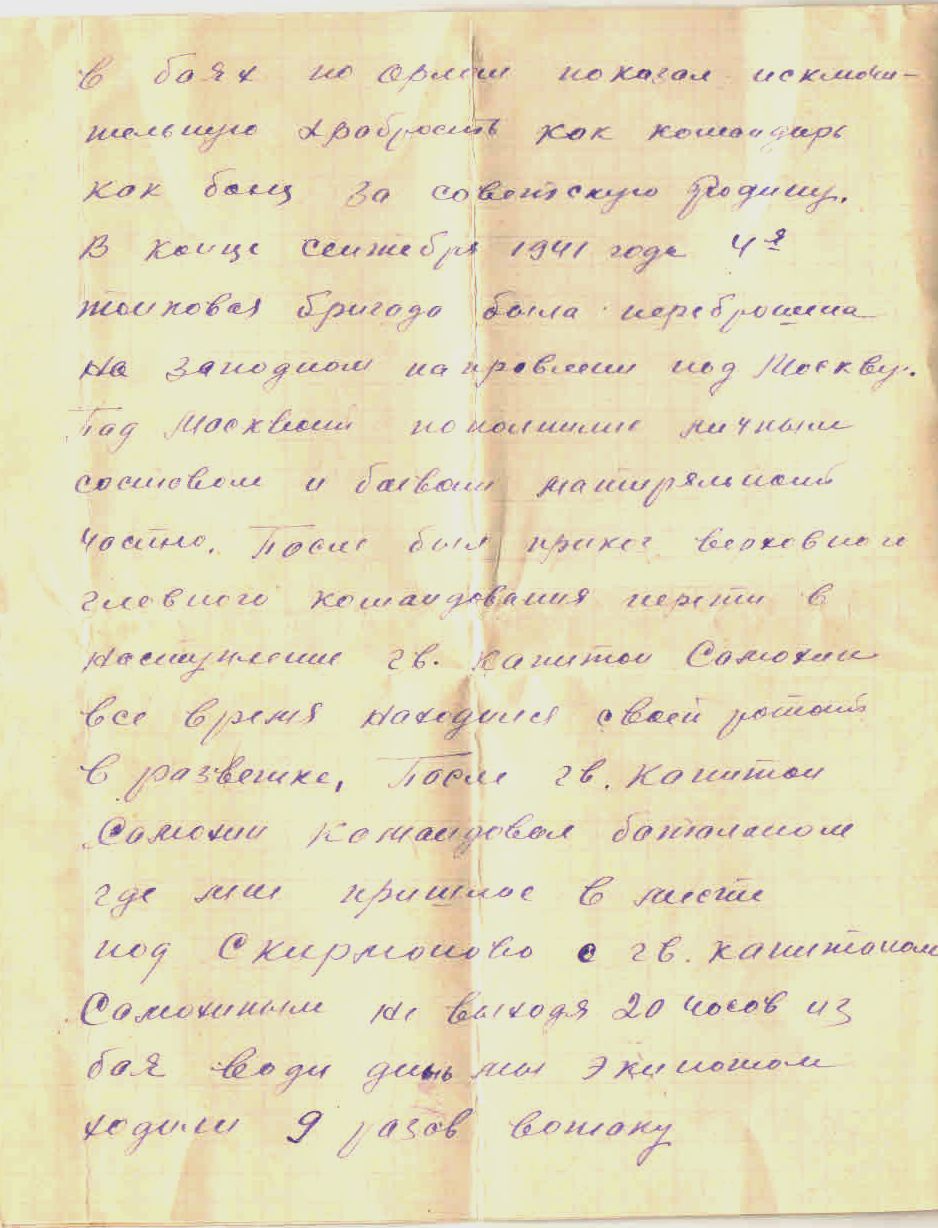 в боях под Орлом показал исключи-
тельную храбрость как командиръ
как боец за советскую Родину.
В конце сентебря 1941 года 4я
танковая бригада была переброшена
на западном направлени под Москву.
Под Москвой пополнилис личным
составом и баевой матиряльной
частю. После был приказ верховного
главного командования перети в
наступление гв. капитан Самохин
все время находился своей ротой
в разветке, После гв. Капитан
Самохин Командовал баталаном
где мне пришлос в месте
под Скирманово с гв. капитаном
Самохиным не выходя 20 часов из
боя водин динь мы экипажом
ходили 9 разов ватаку